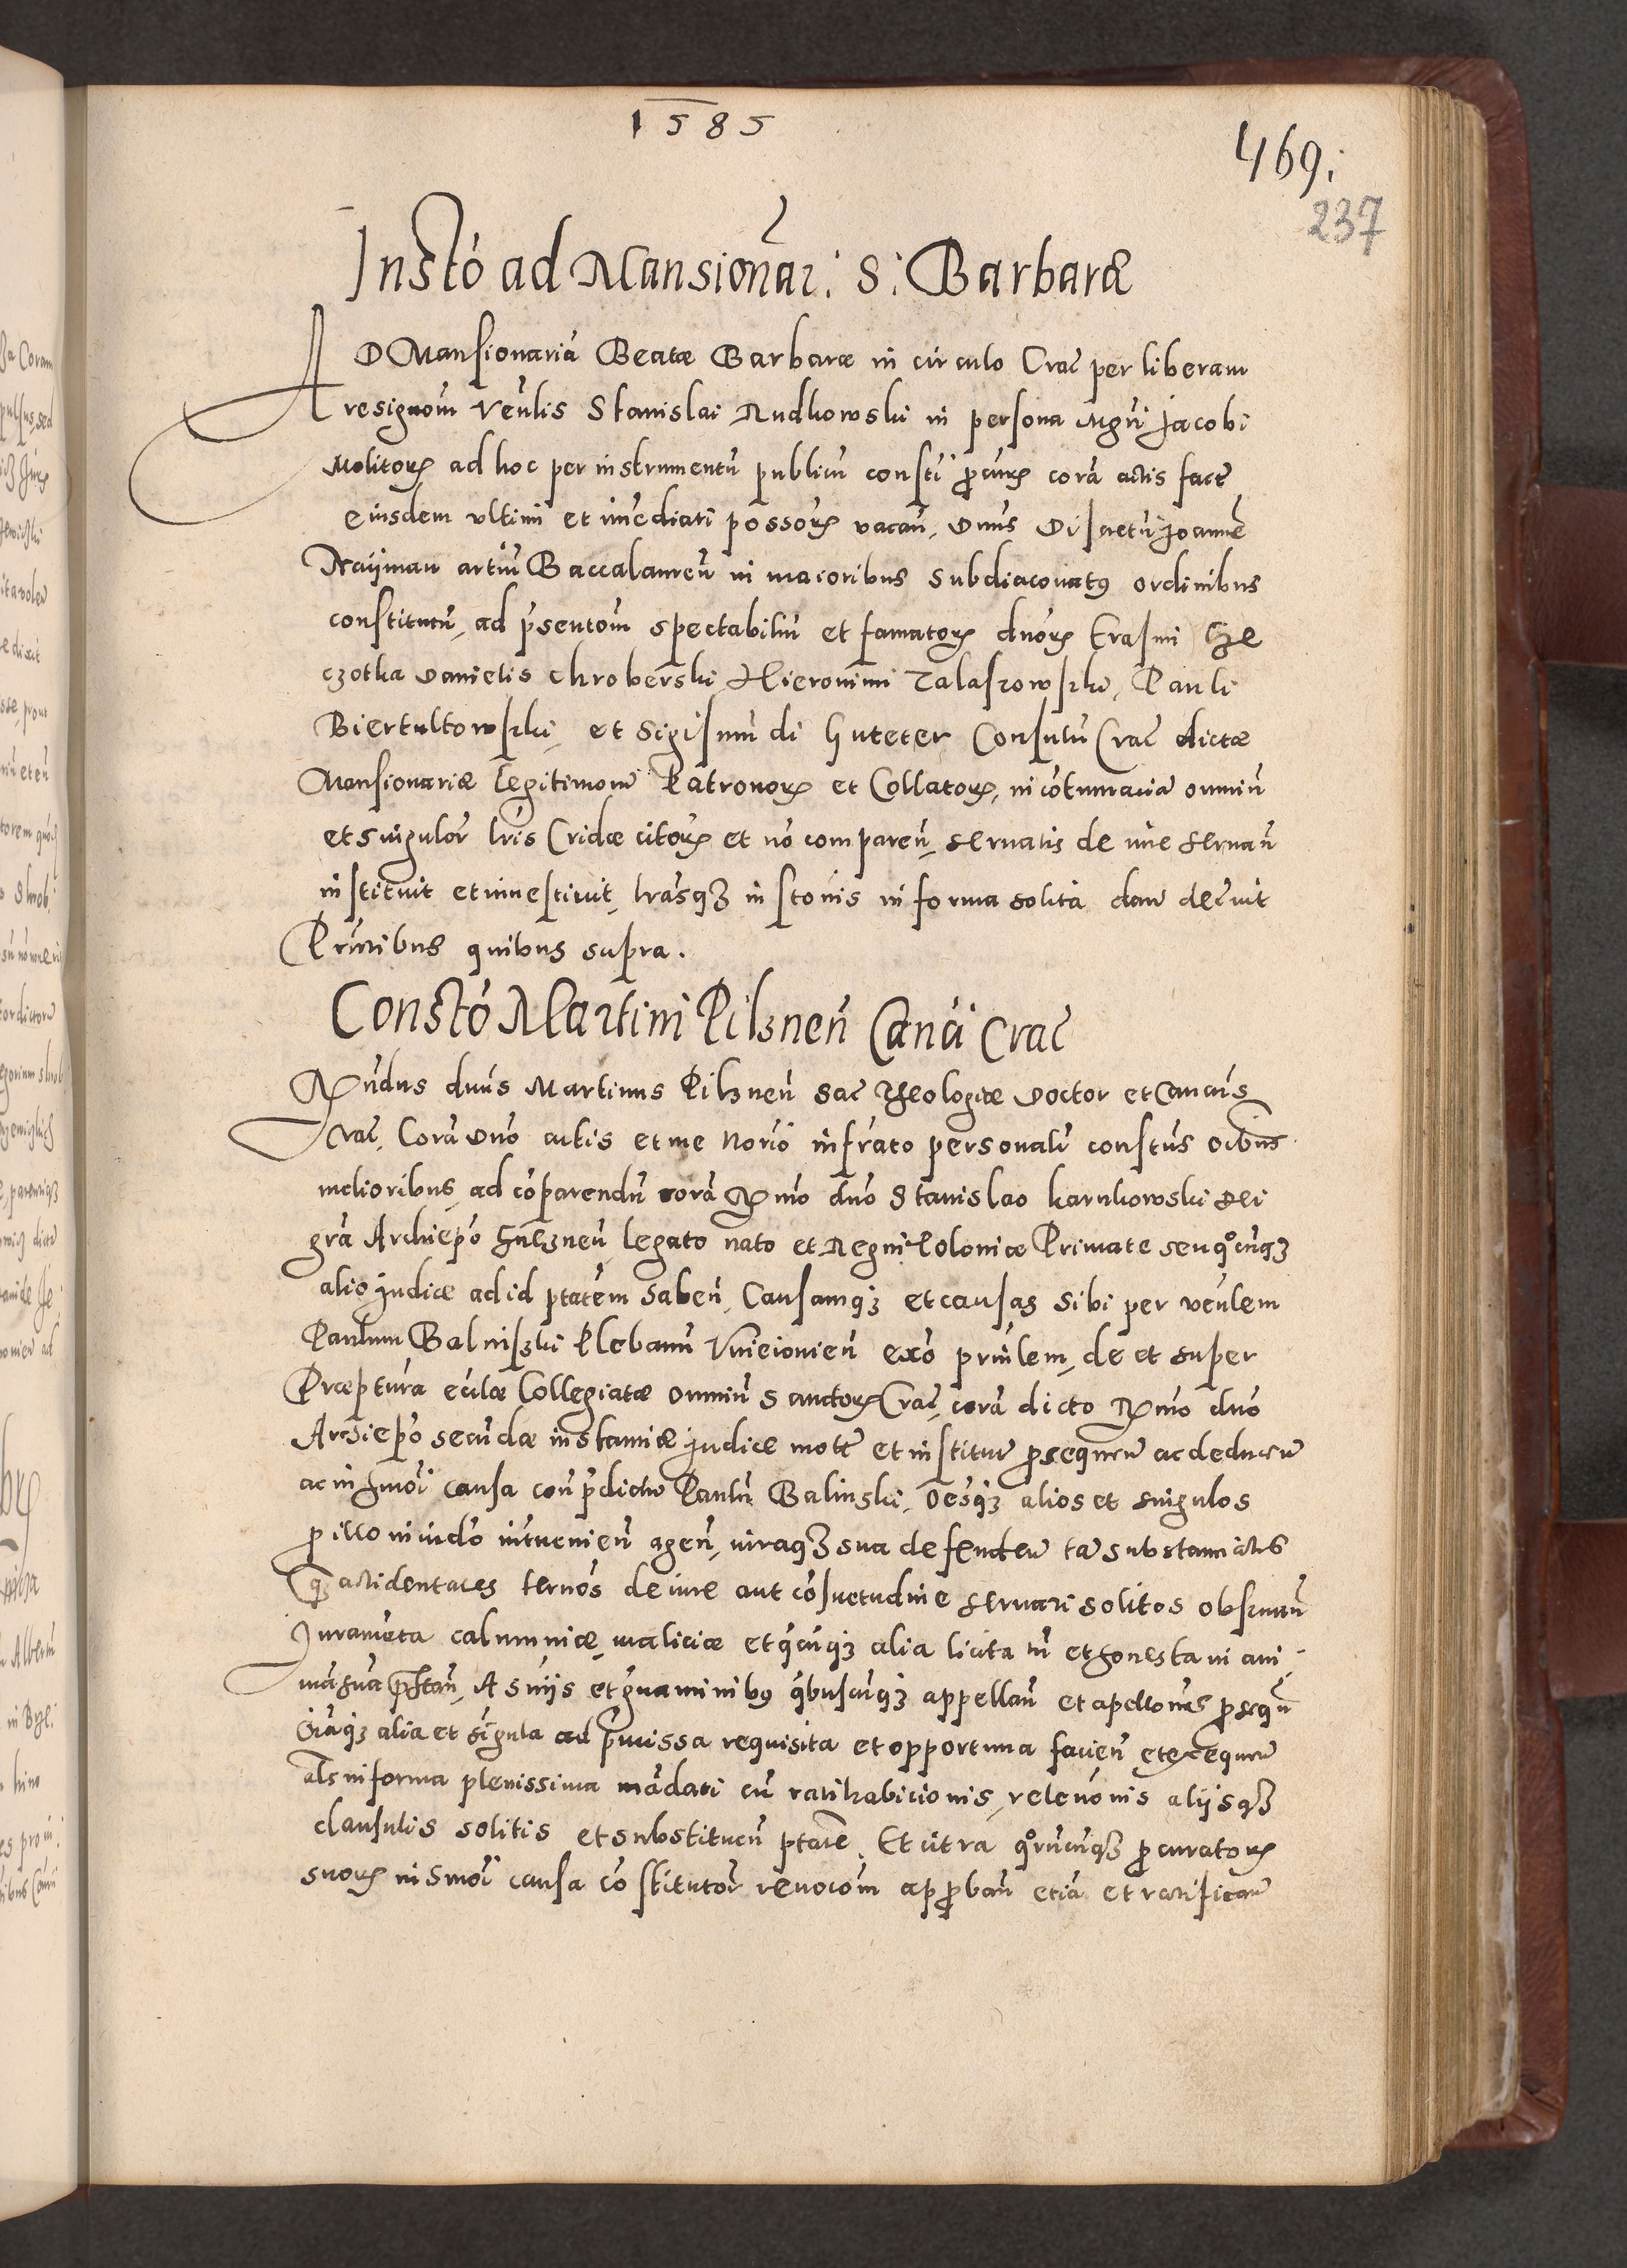 1585
469.
237
Instō ad Mansionar: S: Barbaræ
AD Mansionariā Beatæ Barbaræ in circulo Crac̄ per liberam
resignōm Venlis Stanislai Rudkowski in persona Mgri Jacobi
Molitorꝭ ad hoc per instrumentū publicū constī ꝓcurꝭ corā actis factē
eiusdem ultimi et im̄ediati possorꝭ vacan̄, Dnus Discretū Joannē
Nayman artiū Baccalaureū in maioribus Subdiaconatꝰ ordinibus
constitutū, ad p̄sentōm spectabiliū et famatorꝭ dnorꝭ Erasmi Cze
czotka Danielis Chroberski Hieronimi Zalaszowski, Pauli
Biertultowski, et Sigismūdi Guteter Consulū Crac̄ dictæ
Mansionariæ legitimorū Patronorꝭ et Collatorꝭ, in cōtumaciā omniū
et singulor̄ lrīs Cridæ citorꝭ et nō comparen̄, servatis de iure servan̄
instituit et investivit, lrasqꝫ instōnis in forma solita dan̄ decrevit
Prn̄tibus quibus supra.
Constō Martini Pilznen̄ Canci Crac̄
Rn̄dus dnus Martinus Pilznen̄ Sac̄ Theologiæ Doctor et Cancus
Crac̄, Corā Dno actis et me Norio infrāto personalr̄ constus oībus
melioribus, ad cōparendū corā Rmo dno Stanislao Karnkowski Dei
grā Archiepō Gneznen̄ legato nato et Regni Poloniæ Primate seu qōcūqꝫ
alio judice ad id ptatem haben̄, Causamqꝫ et causas sibi per venlem
Paulum Balinski Plebanū Unieiovien̄ exō prīulem, de et super
Præptura eccliæ Collegiatæ omniū Sanctorꝭ Crac̄, corā dicto Rmo dno
Archiepō secūdæ instantiæ judice motā et institutā ꝓsequen̄ ac deducen̄
ac in hmōi causa con̄ p̄dictū Paulū Balinski, Oēsqꝫ alios et singulos
ꝓ illo in iudō intervenien̄ agen̄, iuraqꝫ sua defenden̄ tā substantiales
ꝙ accidentales ternōs de iure aut cōsuetudine servari solitos observan̄
Juramēta calumniæ, maliciæ et qcūqꝫ alia licita tn̄ et honesta in ani
mā suā p̄stan̄, A snīis et gravaminibꝰ qbuscūqꝫ appellan̄ et apellōnes ꝓseqū
Oīaqꝫ alia et sīgula ad p̄missa requisita et opportuna facien̄ et exequen̄
als in forma plenissima mādati cū ratihabicionis, relevōnis alijsqꝫ
clausulis solitis et substituen̄ ptate, Et citra qōrūcūqꝫ ꝓcuratorꝭ
suorꝭ in hmōi causa cōstitutor̄ revocōm apꝓban̄ etiā et ratifican̄